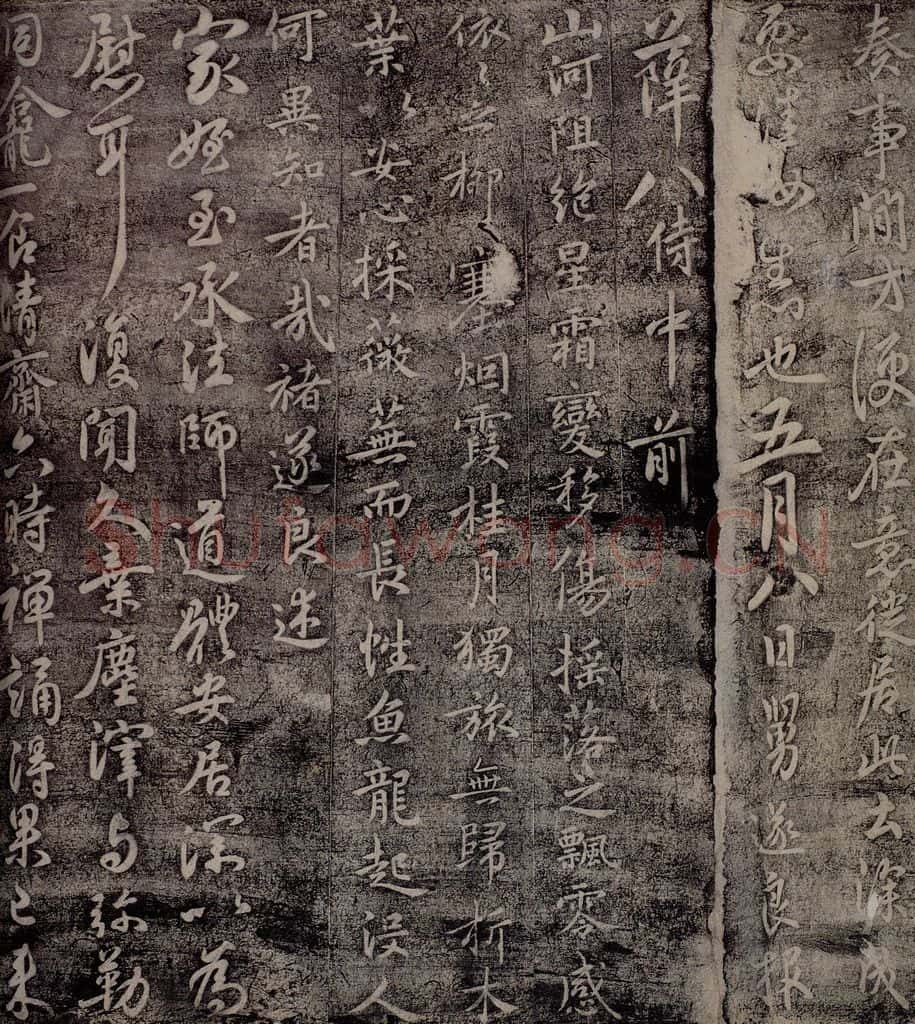 奏事間才便在意從居此去深成
要佳也五月八日舅遂良報
薛八侍中前
山河阻絶星霜變移傷摇落之飄零感
依依之柳塞烟霞桂月獨旅無歸折木
葉以安心採薇蕪而長性魚龍起没人
何異知者哉褚遂良述
家姪至承法師道體安居深以為
慰耳復聞久棄塵滓与弥勒
同龕一食清齋六時禪誦得果已来
shutawang.CN